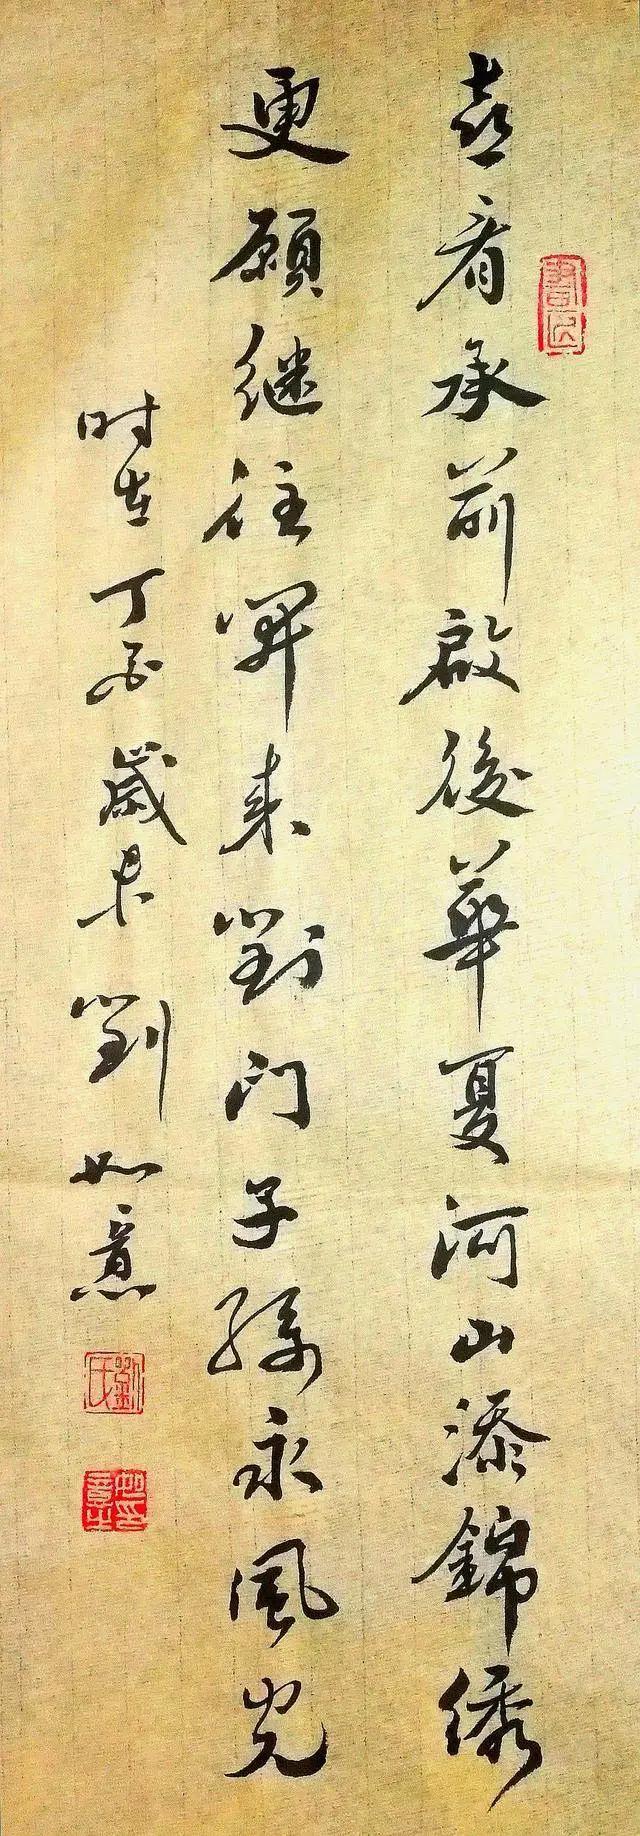 喜看承前啟後華夏河山添錦绣
更願继往開来劉门子孫永風光
时在丁酉歲末劉如意
劉氏